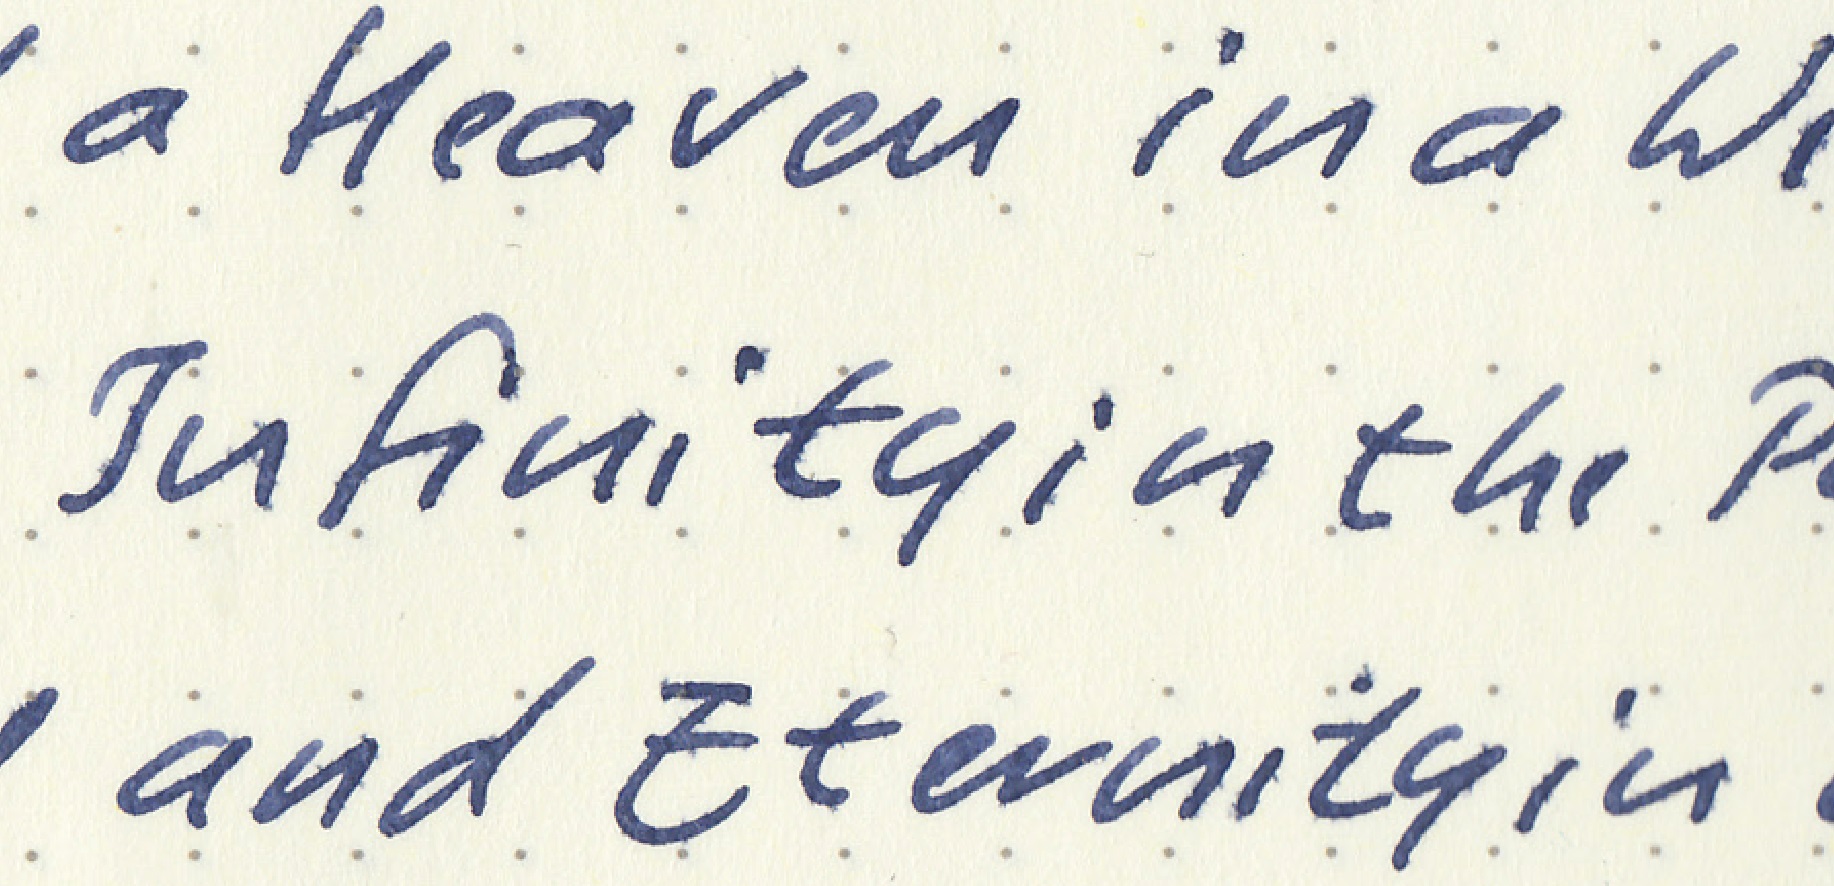 a Heaven in a Wi
Infinity in the P
and Eternity in